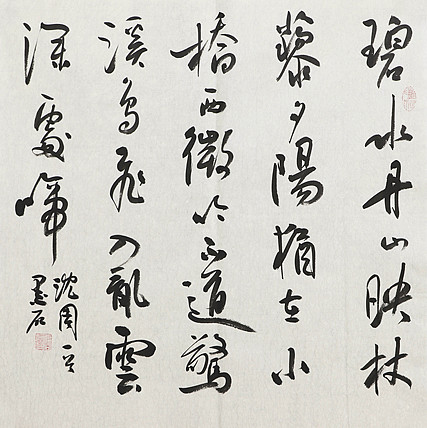 碧水丹山映杖
藜夕陽猶在小
橋西微吟不道驚
溪鳥飛入亂雲
深處啼
沈周
墨石